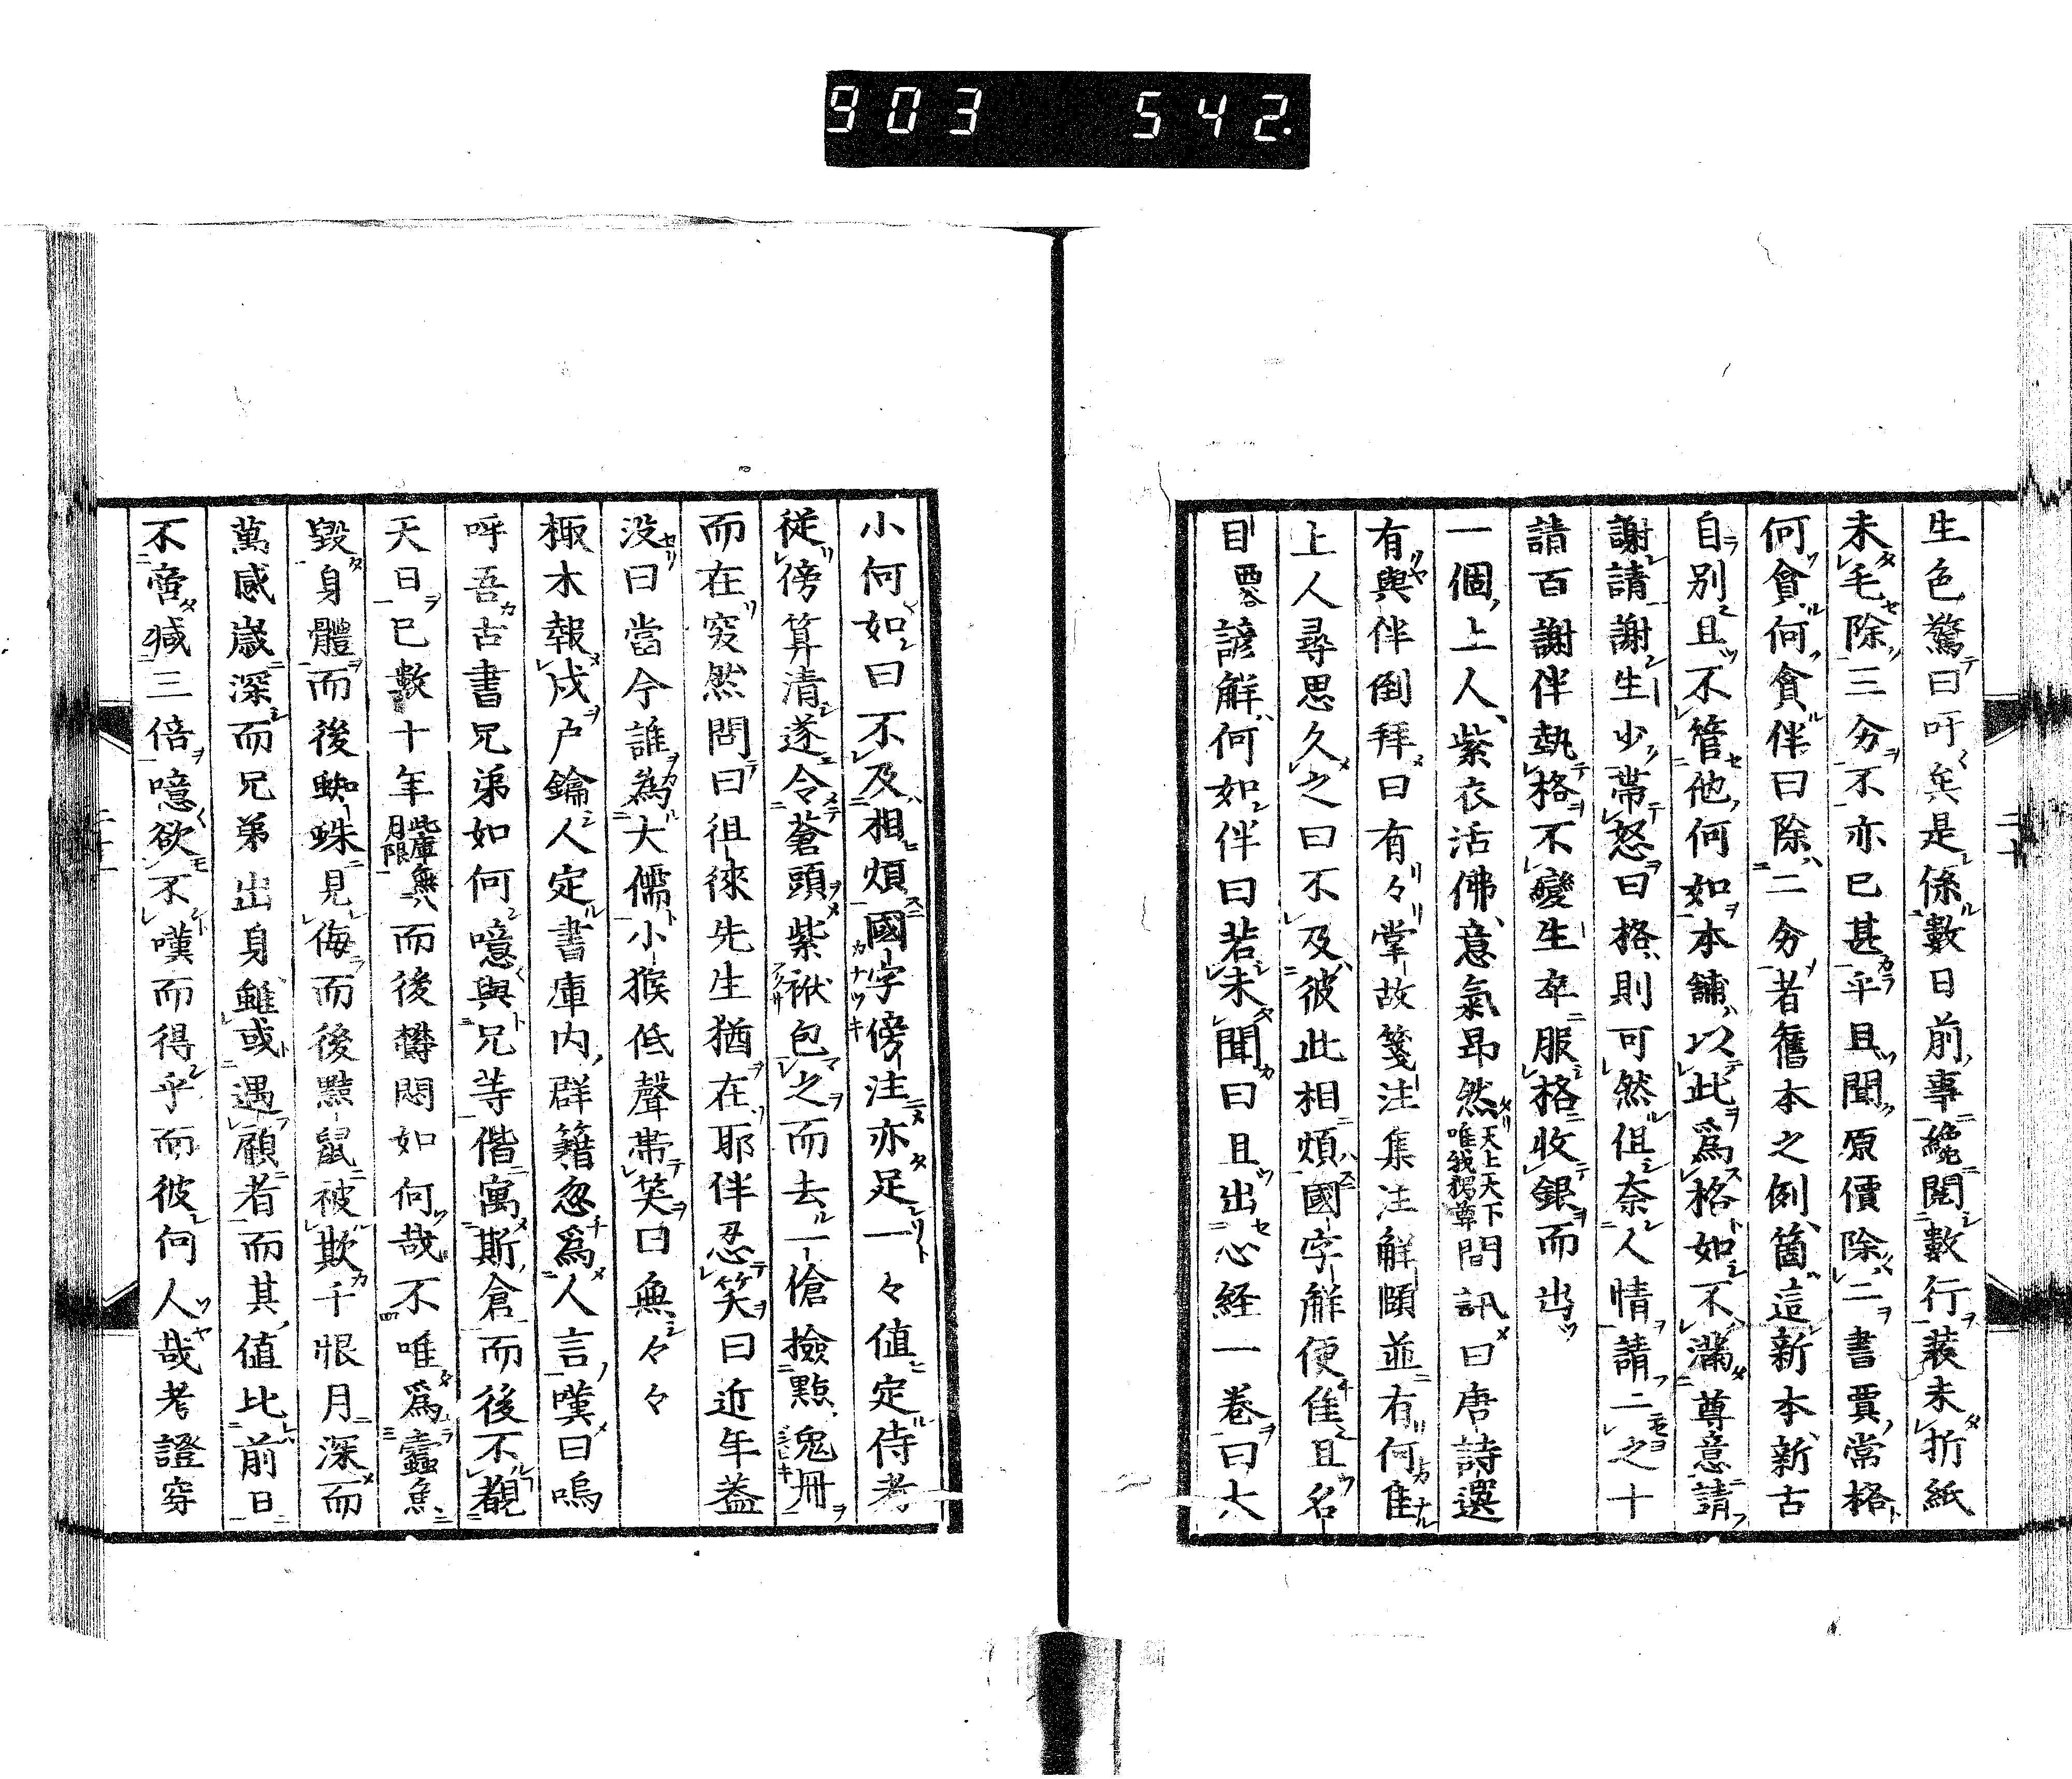 903 542.
生色驚曰吁矣是係數日前事纔閱數行裝未折紙
未毛除三分不亦已甚乎且聞原價除二書賈常格
何貪何貪伴曰除二分者舊本之例箇這新本新古
自別且不管他何如本舖以此為格如不滿尊意請
謝請謝生少帶怒曰格則可然但奈人情請二之十
請百謝伴執格不變生卒服格收銀而出
一個上人紫衣活佛意氣昂然天上天下唯我獨尊問訊曰唐詩選
有與伴倒拜曰有々掌故箋注集注解頤並有何隹
上人尋思久之曰不及彼此相煩國字解便隹且名
目諺解何如伴曰若未聞曰且出心経一卷曰大
小何如曰不及相煩國字傍注亦足一々値定侍者
從傍算清遂令蒼頭紫袱包之而去一傖撿點兔冊
而在突然問曰徂徠先生猶在耶伴忍笑曰近年蓋
没曰當今誰為大儒小猴低聲帶笑曰無々々
柝木報戍戶鑰人定書庫内群籍忽為人言嘆曰嗚
呼吾古書兄弟如何噫與兄等偕寓斯倉而後不覩
天日已數十年此庫無八月限而後欝悶如何哉不唯為蠹魚
毀身體而後蜘蛛見侮而後黠鼠被欺千恨月深而
萬感歲深而兄弟出身雖或遇顧者而其値比前日
不啻減三倍噫欲不嘆而得乎而彼何人哉考證穿